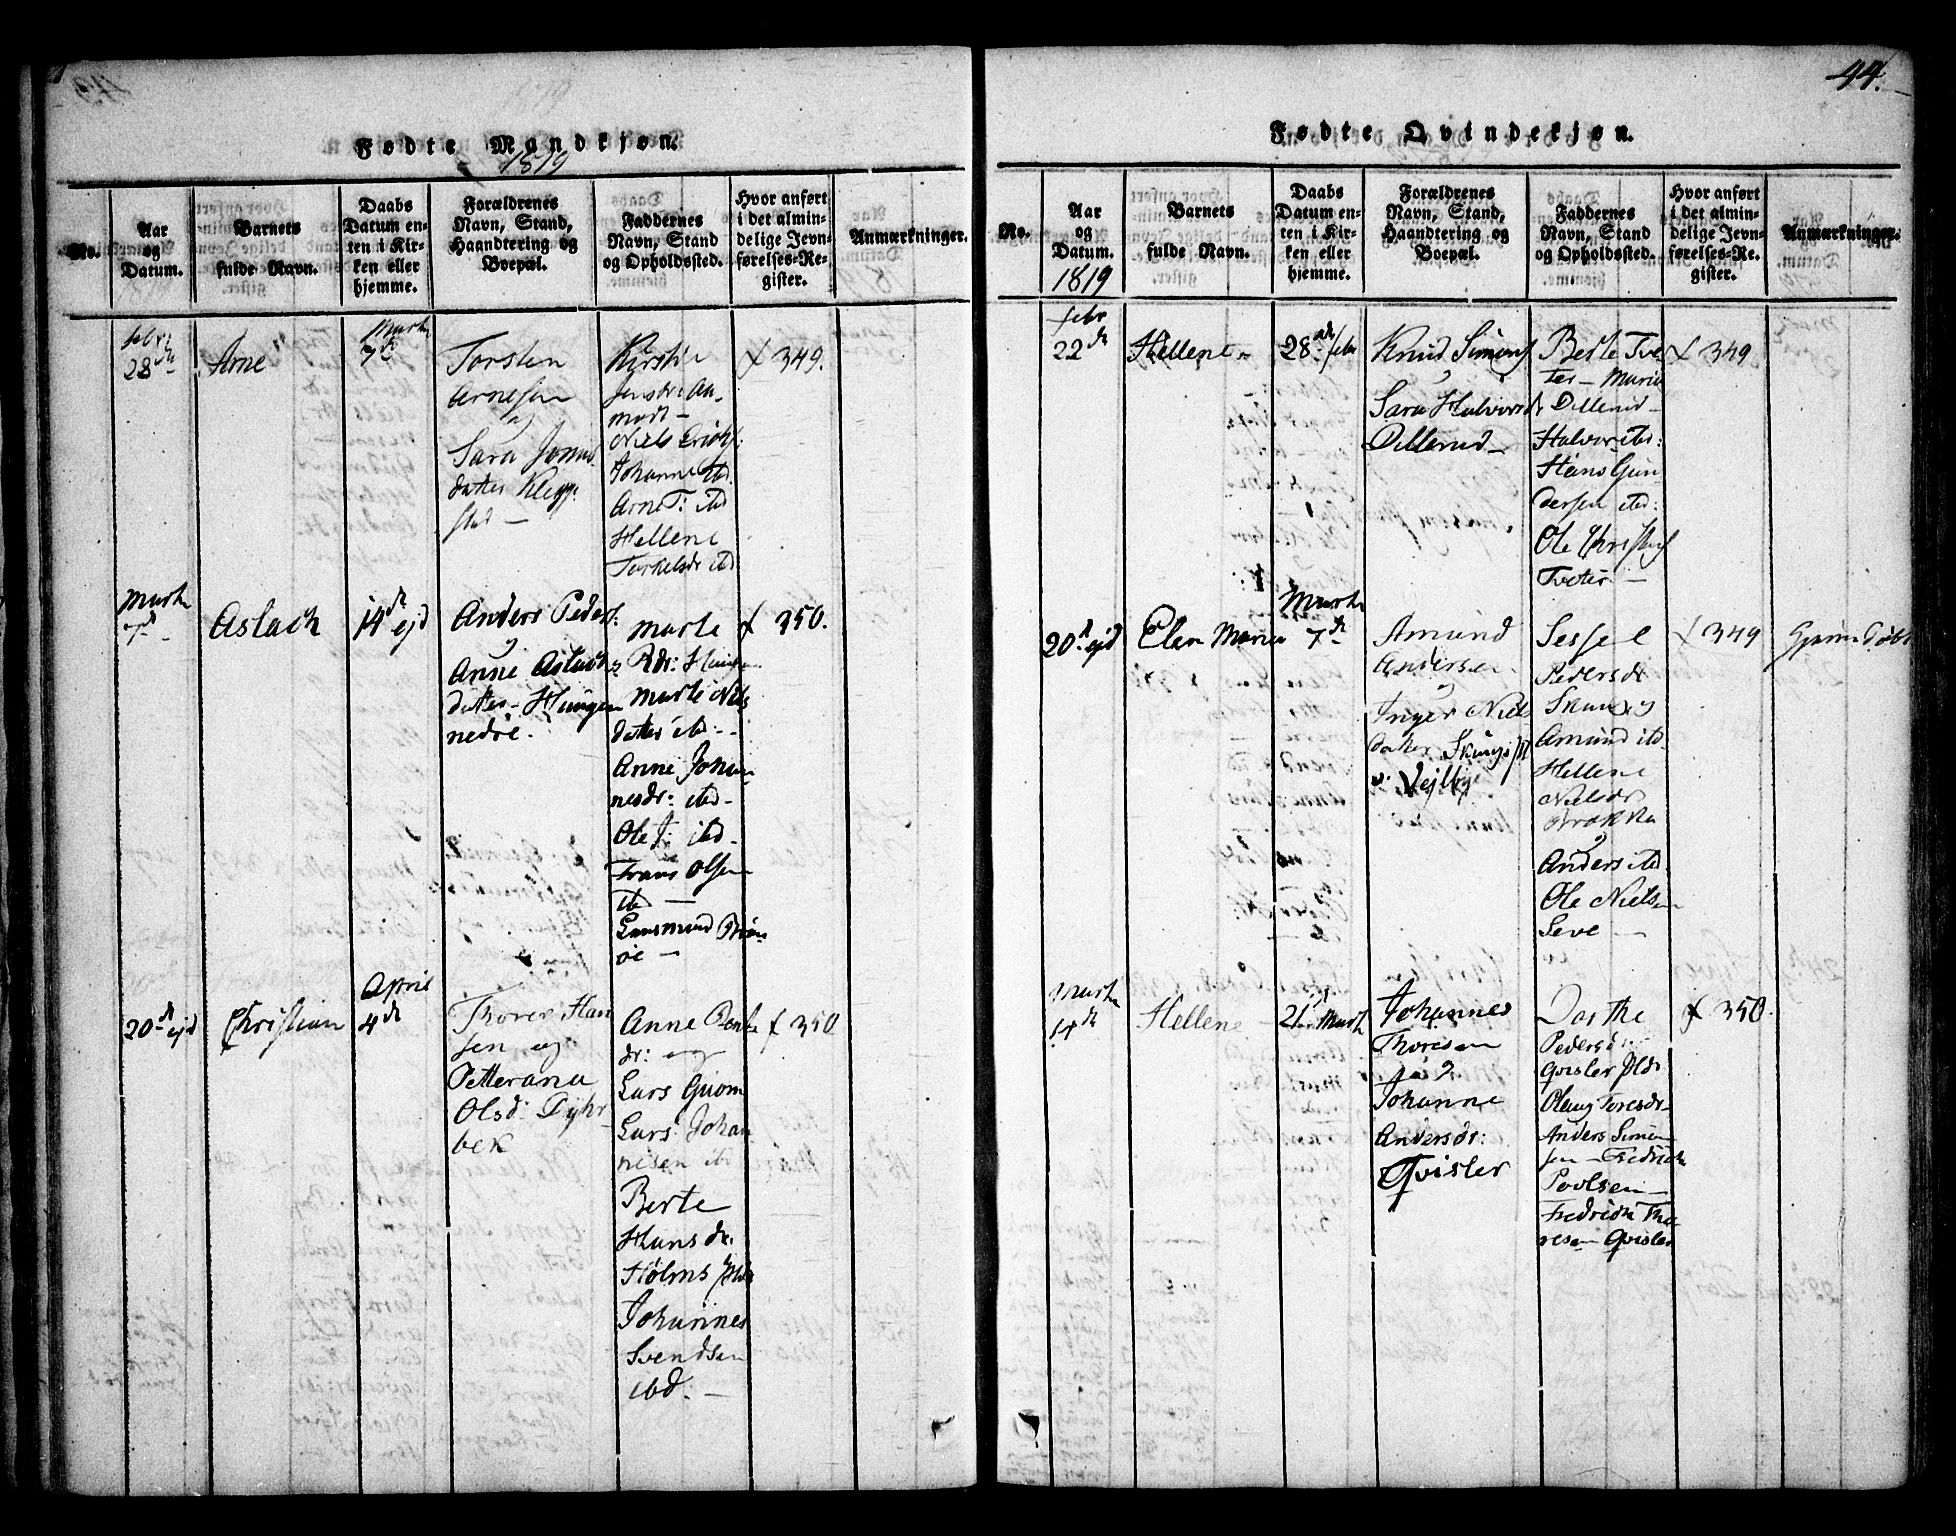 44.
Fødte Mandkjøn.
1819
No.
Aar
og
Datum.
Barnets
fulde Navn.
Daabs
Datum en-
ten i Kir-
ken eller
hjemme.
Forældrenes
Navn, Stand,
Haandtering og
Boepæl.
Faddernes
Navn, Stand
og Opholdssted.
Hvor anført
i det almin-
delige Jevn-
førelses-Re-
gister.
Anmærkninger.
febr:
28de
Arne
Marts
7de
Torsten
Arnesen
og
Sara
datter Klegg-
stad —
Kirstie
Niels Erichs:
Johanne ibd
Arne T: ibd
Hellene
Torkelsdr ibd
349.
Marts
Aslach
14de ejd
Anders Peders:
og
Anne Aslachs
datter
nedre.
Marte
Pdr:
Marte Niels
datter ibd: -
Anne Johan
nesdr: ibd -
Ole J: ibd -
Frans Olsen
ibd —
Gausmund
øe —
350.
20de ejd
Christian
April
4de
Thorer Han
sen og
Petterana
Olsd: Dyhr
bek
Anne
dr: og
Lars
Lars Johan
nesen ibd
Berte
Hans dr:
Holms
Johannes
Svendsen
ibd. —
350
Fødte Qvindekjøn.
No.
Aar
og
Datum.
1819
Barnets
fulde Navn.
Daabs
Datum en-
ten i Kir-
ken eller
hjemme.
Forældrenes
Navn, Stand,
Haandtering og
Boepæl.
Faddernes
Navn, Stand
og Opholdssted.
Hvor anført
i det almin-
delige Jevn-
førelses-Re-
gister.
Anmærkninger.
febr
22de
Hellene
28de febr
Knud Simens
og
Sara Halvorsdr
Dillerud —
Berte Tve
ter — Maria
Dillerud —
Halvor ibd:
Hans Gun
dersen ibd:
Ole Christens
Tveter —
349
20de ejd
Elen Maria
Marts
7de
Amund
Andersen
og
Inger Niels
datter
v: Vejlbye
Sessel
Pedersdr
og
Amund ibd.
Hellene
Nielsdr
og
Anders ibd.
Ole Nielsen
Seve —
349
Hjemmedøbt
Marts
14de
Hellene —
21de Marts
Johannes
Thoresen
og
Johanne
Andersdr:
Qvisler
Dorthe
Pedersdr
Qvisler
Olaug Toresdr -
Anders Simen
sen — Fredrich
Povlsen —
Fredrich Tho
resen Qvisler
350.